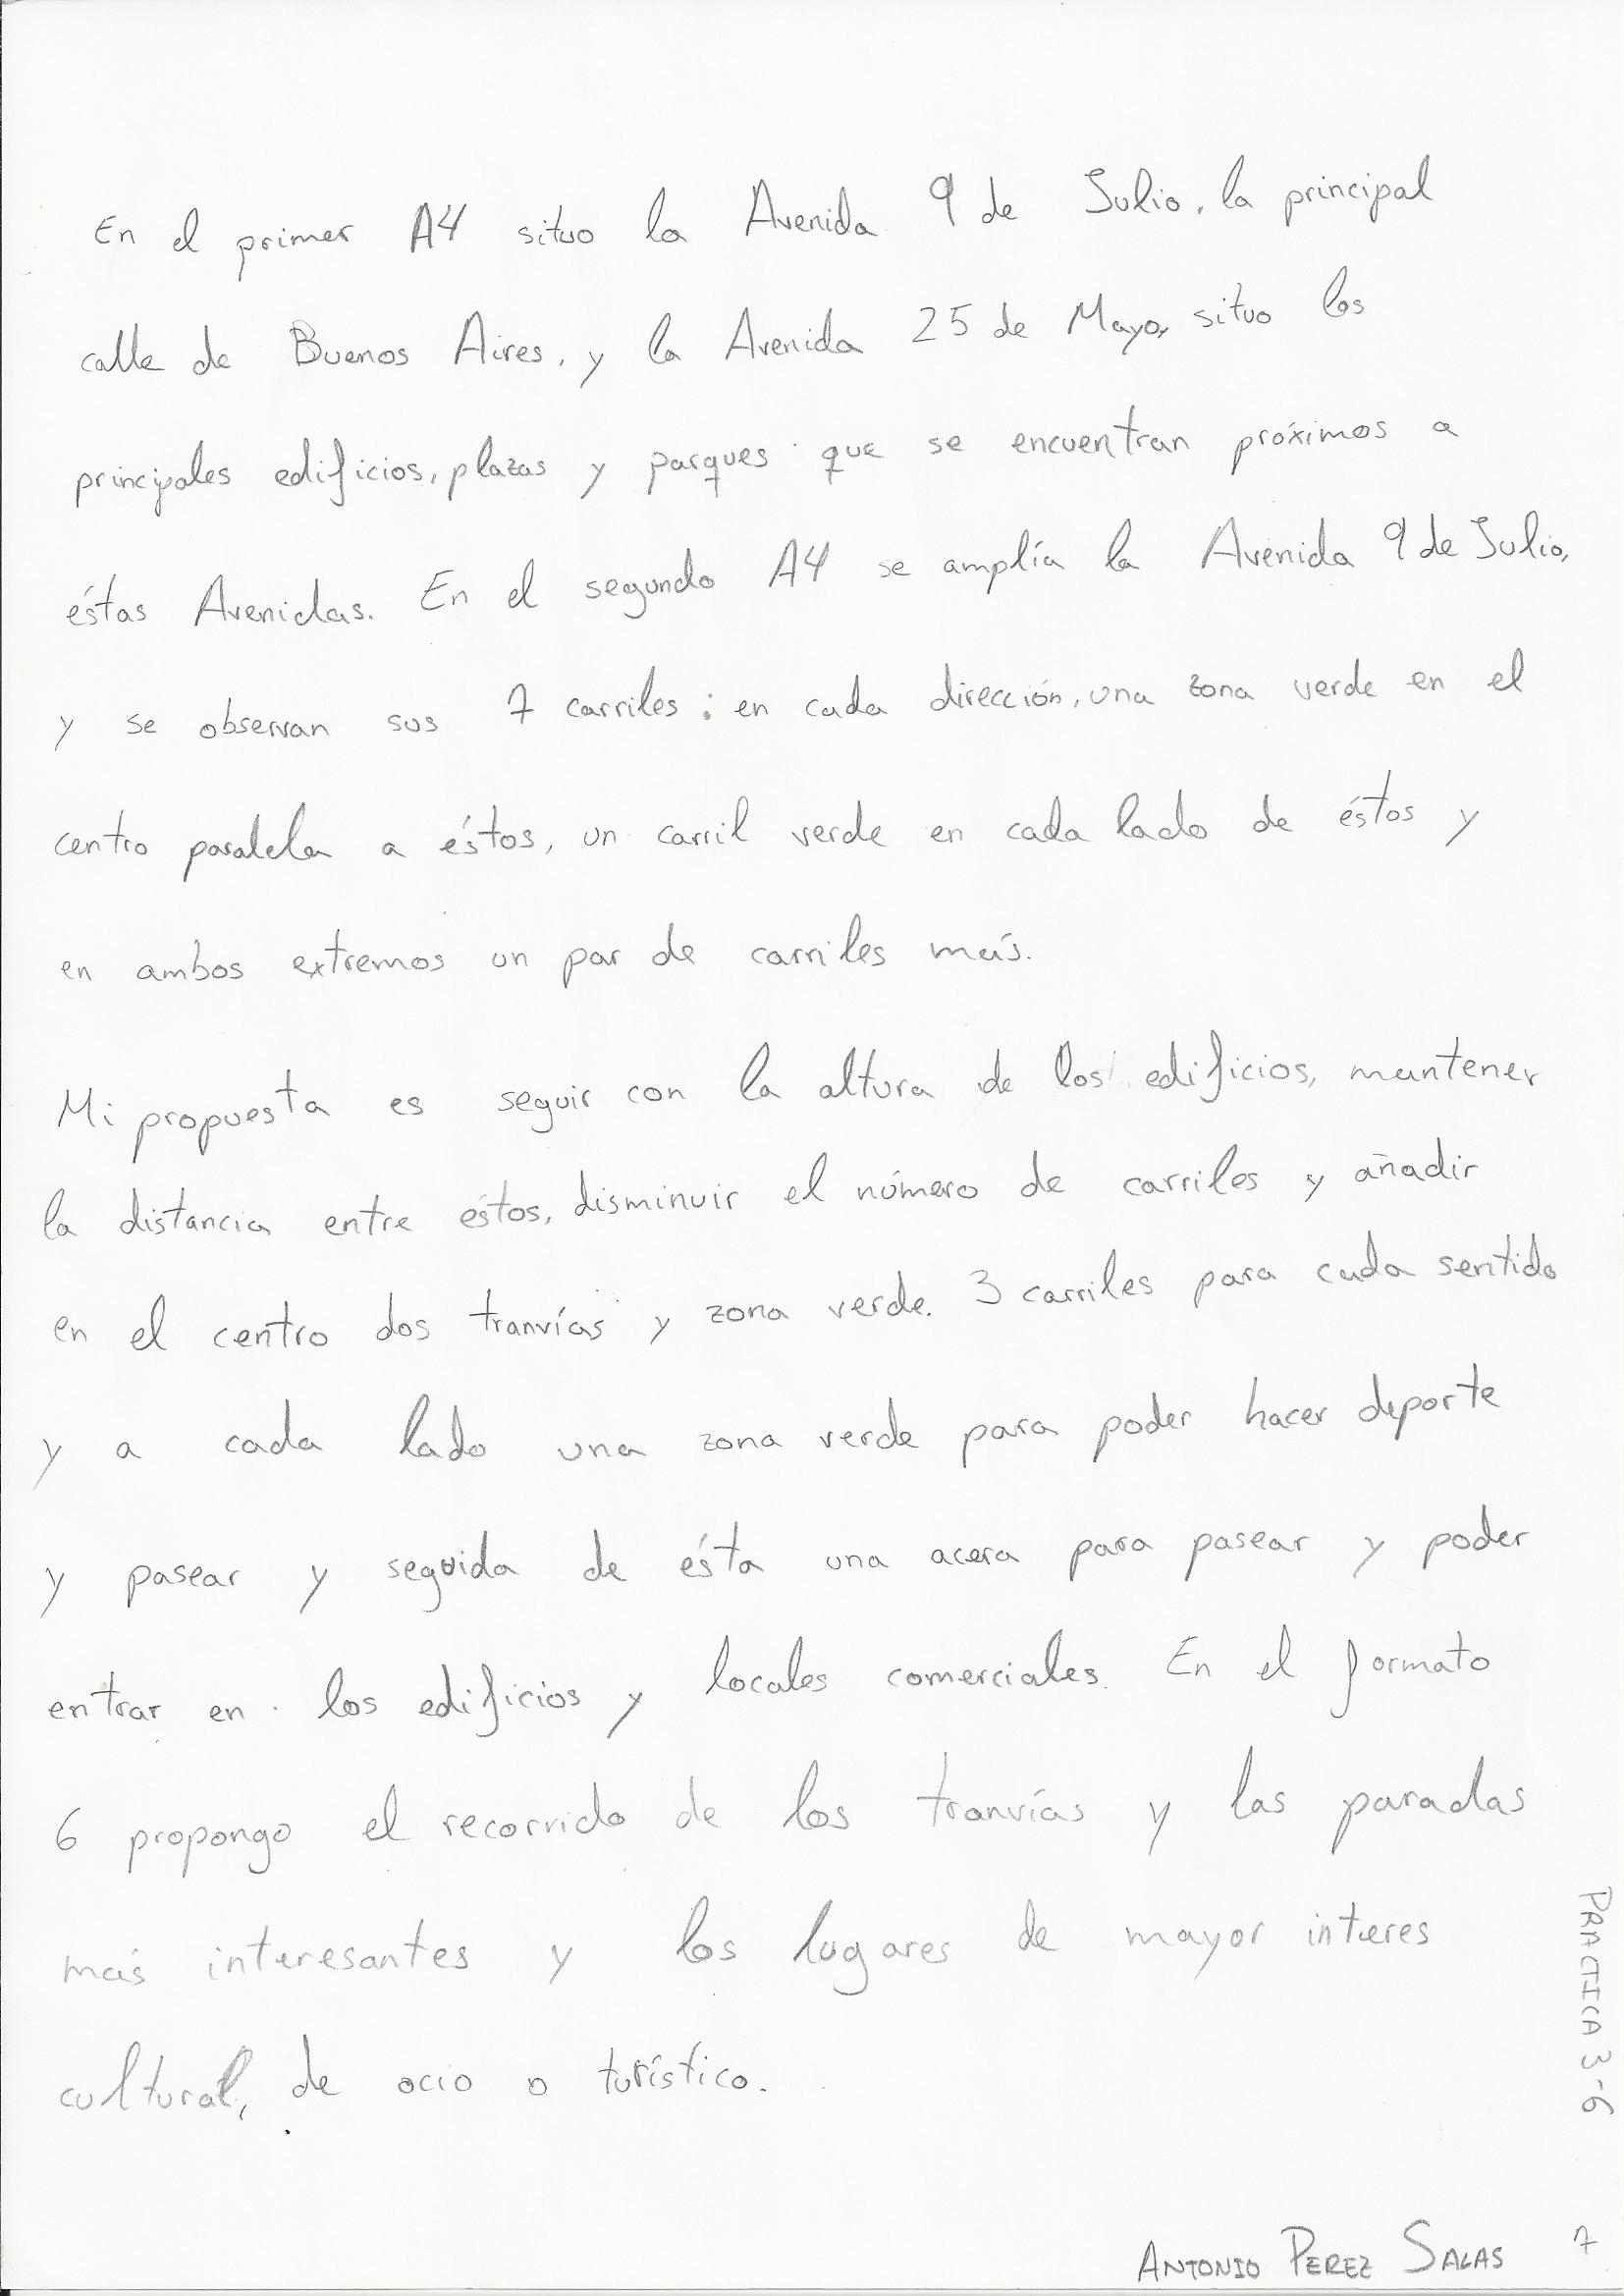 En el primer A4 situo la Avenida 9 de Julio, la principal
calle de Buenos Aires, y la Avenida 25 de Mayo, situo los
principales edificios, plazas y parques que se encuentran próximos a
éstas Avenidas. En el segundo A4 se amplía la Avenida 9 de Julio,
y se observan sus 7 carriles; en cada dirección, una zona verde en el
centro paralela a éstos, un carril verde en cada lado de éstos y
en ambos extremos un par de carriles más.
Mi propuesta es seguir con la altura de los edificios, mantener
la distancia entre éstos, disminuir el número de carriles y añadir
en el centro dos tranvías y zona verde. 3 carriles para cada sentido
y a cada lado una zona verde para poder hacer deporte
y pasear y seguida de ésta una acera para pasear y poder
entrar en los edificios y locales comerciales. En el formato
6 propongo el recorrido de los tranvías y las paradas
más interesantes y los lugares de mayor interes
cultural, de ocio o turístico.
PRACTICA 3-6
ANTONIO PEREZ SALAS 7